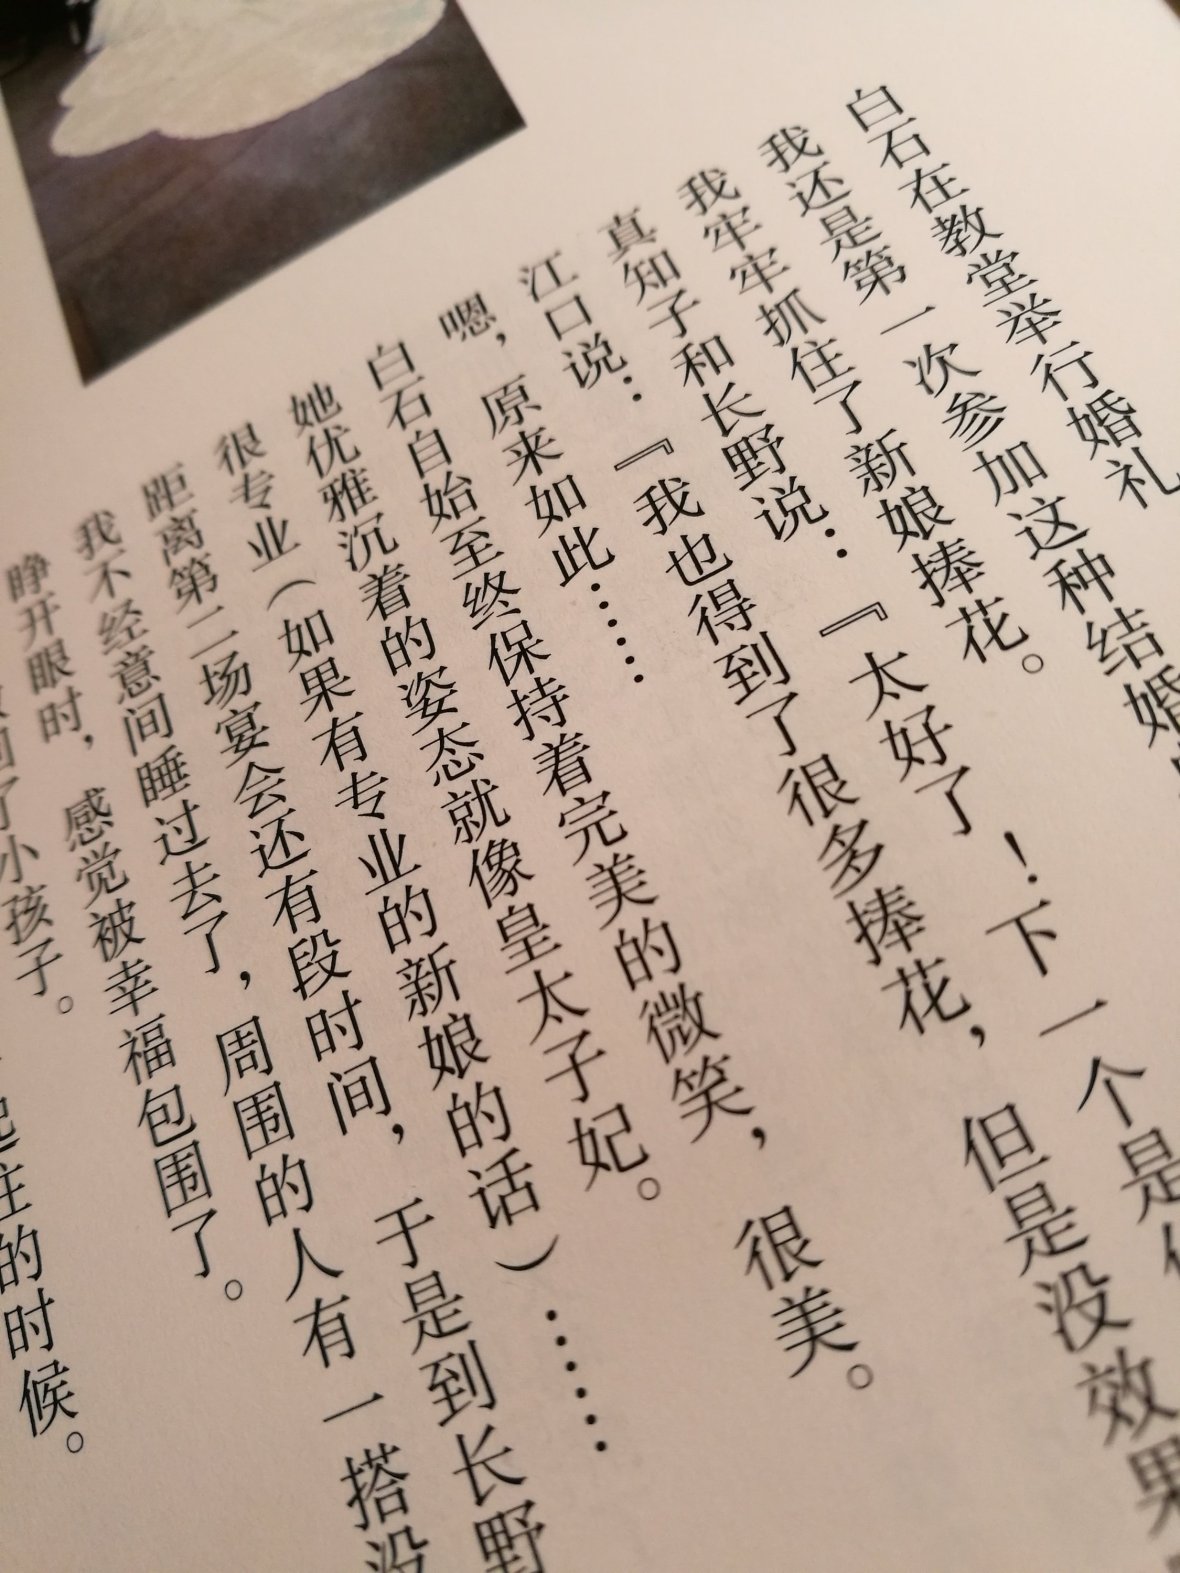 白石在教堂举行婚礼
我还是第一次参加这种结婚
我牢牢抓住了新娘捧花。
真知子和长野说：『太好了！下一个是
江口说：『我也得到了很多捧花，但是没效果
嗯，原来如此……
白石自始至终保持着完美的微笑，很美。
她优雅沉着的姿态就像皇太子妃。
很专业（如果有专业的新娘的话）……
距离第二场宴会还有段时间，于是到长野
我不经意间睡过去了，周围的人有一搭没
睁开眼时，感觉被幸福包围了。
回了小孩子。
的时候。